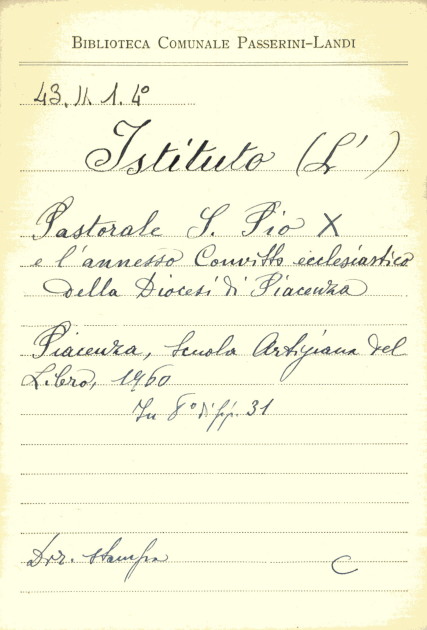 BIBLIOTECA COMUNALE PASSERINI-LANDI
43. II. 1. 4°
Istituto (L')
Pastorale S. Pio X
e l'annesso Convitto ecclesiastico
della Diocesi di Piacenza
Piacenza, Scuola Artigiana del
Libro, 1960
In 8° di pp. 31
Dir. Stampa
C